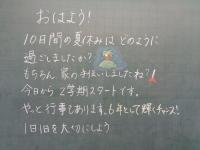 おはよう!
10日間の夏休みはどのように
過ごしましたか?
もちろん 家の手伝いしましたね?!
今日から2学期スタートです。
やっと行事もあります。6年として輝くチャンス!
1日1日を大切にしよう